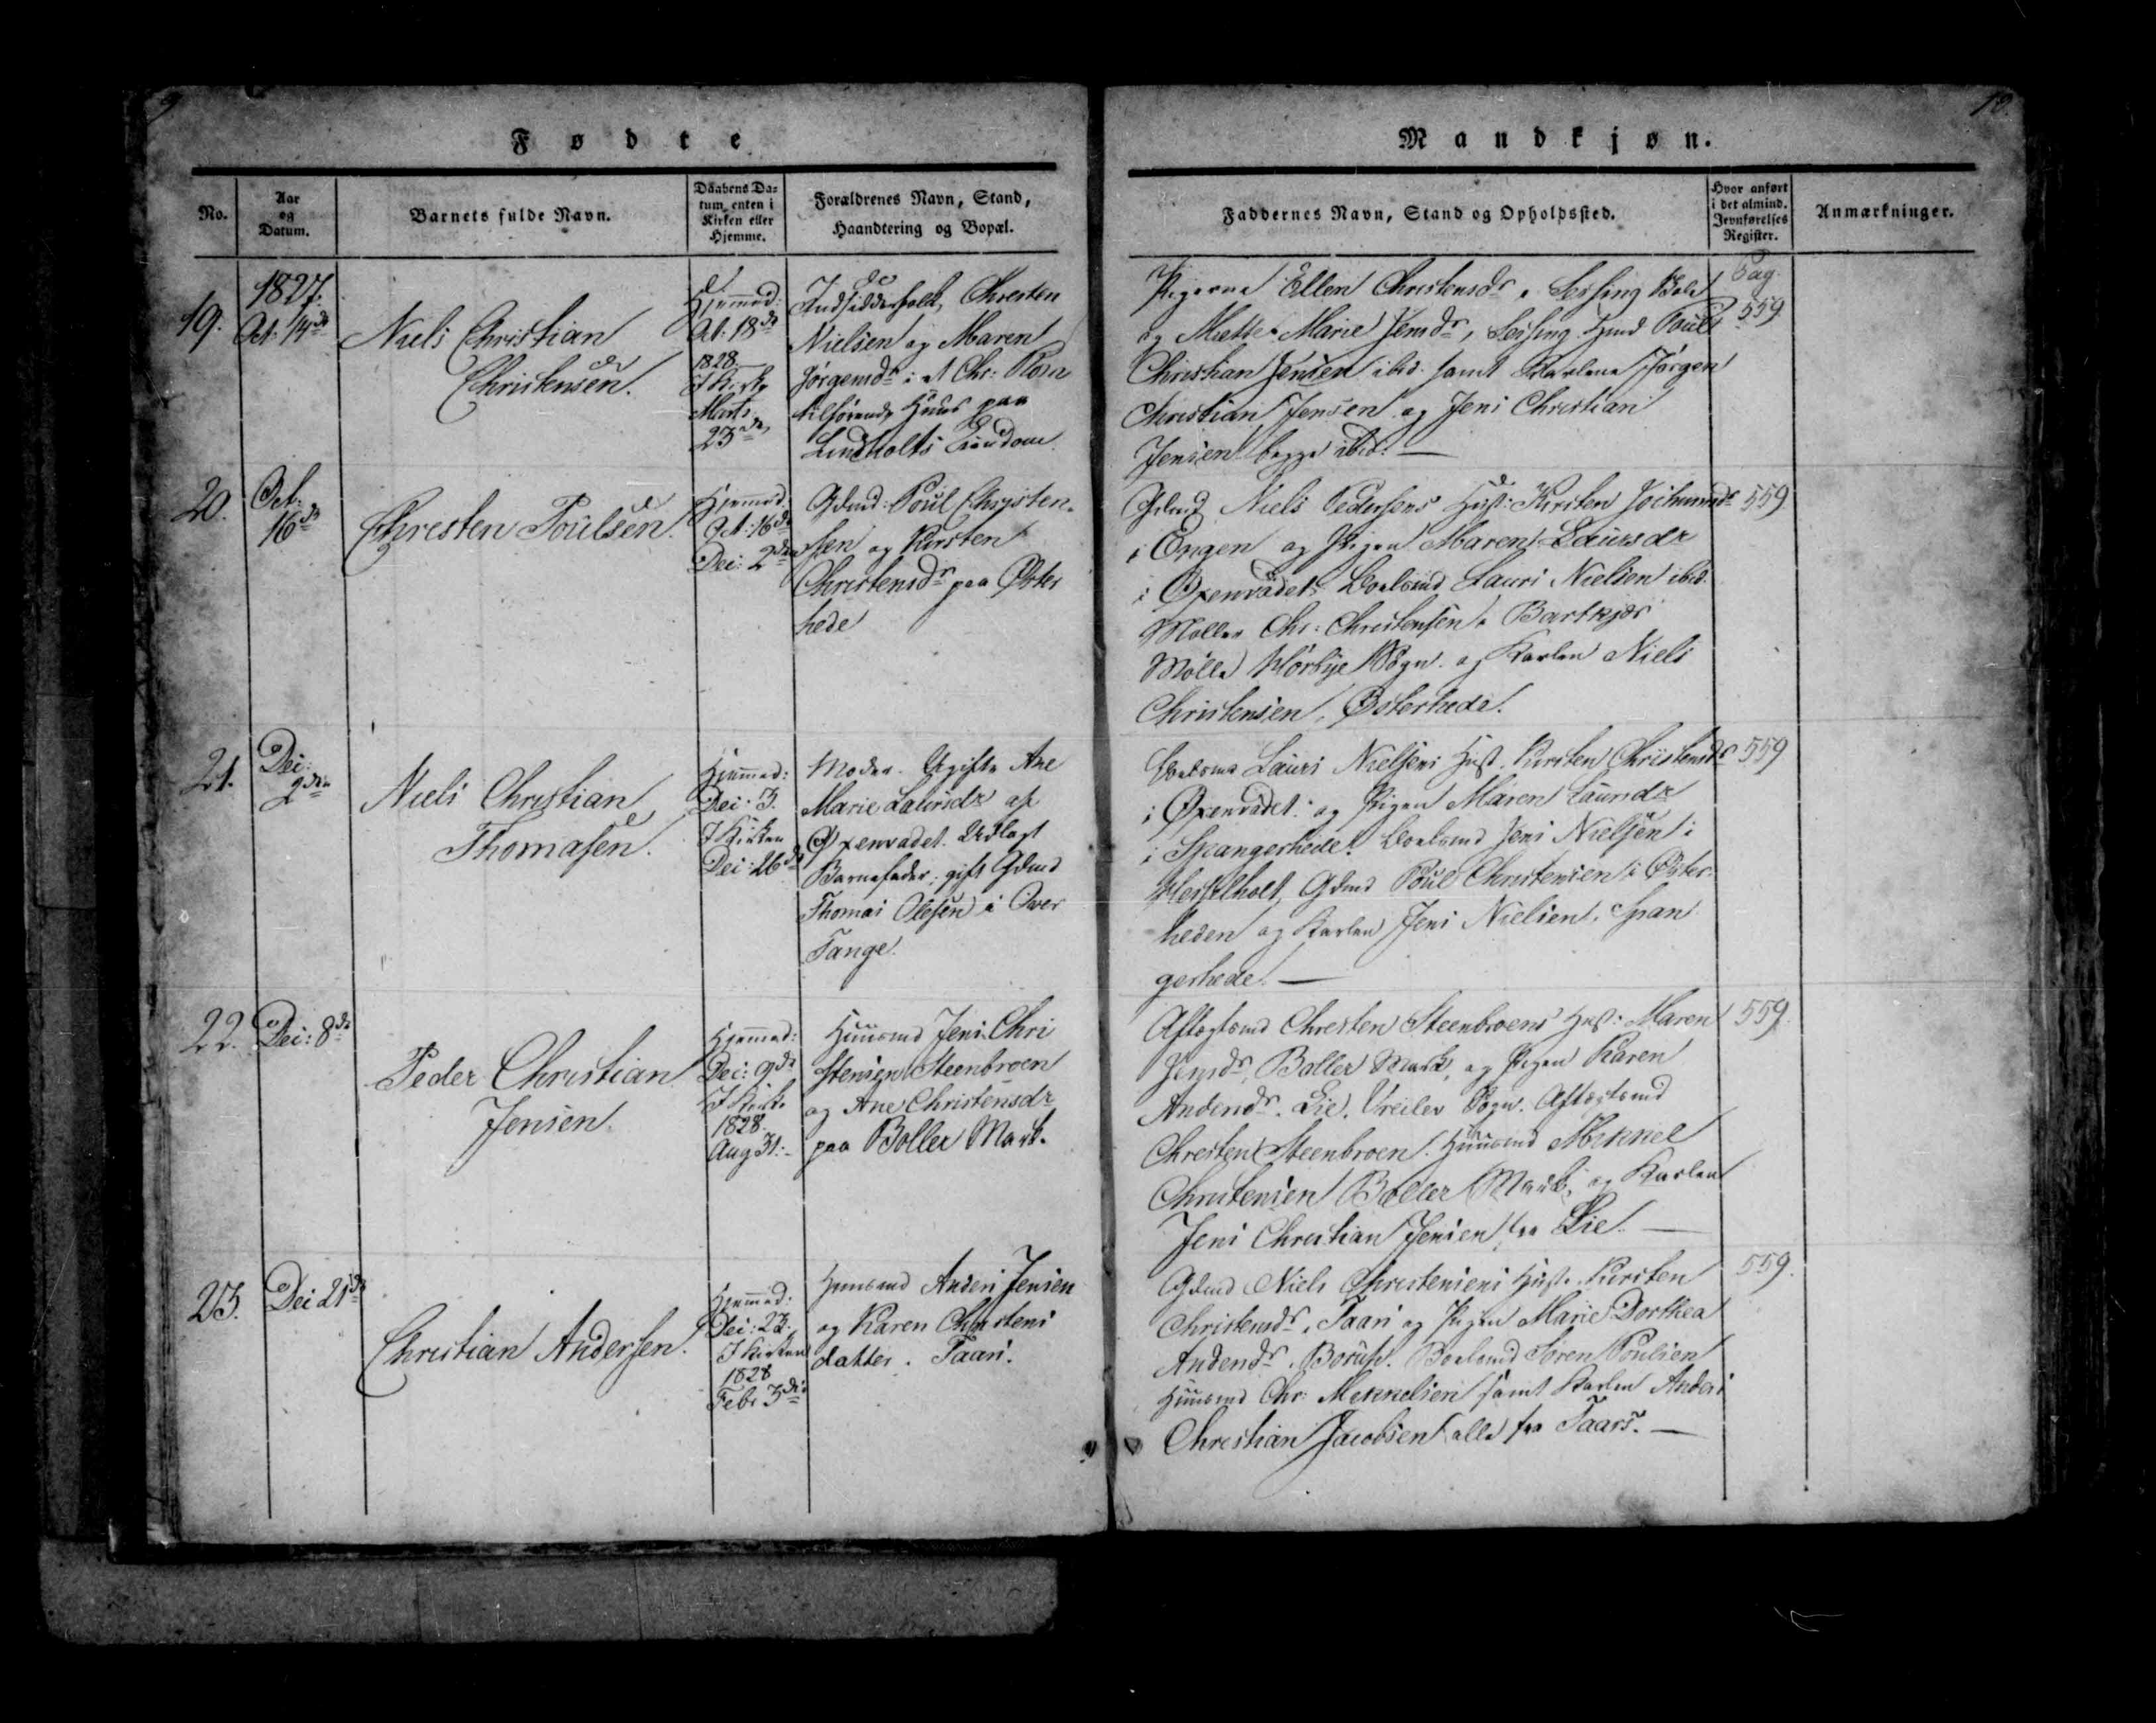 9
Fødte
No.
Aar
og
Datum.
Barnets fulde Navn.
Daabens Da-
tum, enten i
Kirken eller
Hjemme.
Forældrenes Navn, Stand,
Haandtering og Bopæl.
19.
1827.
Oct: 14de
Niels Christian
Christensen.
Hjemmed:
Oct: 18de
1828
I Kirke
Marts
23de
Indsidderfolk, Chresten
Nielsen og Maren
Jørgensdr i et Chr:
tilhørende Huus paa
Lindholts Eiendom
20.
Oct.
16de
Chresten Poulsen.
Hjemmed:
Oct: 16de
Dec: 2den
Gdmd: Poul Christen-
sen og Kirsten
Christensdr paa Øster
hede
21.
Dec:
2den
Niels Christian
Thomasen.
Hjemmed:
Dec: 3.
I Kirken
Dec: 26de
Moder. Ugifte Ane
Marie Laursdr af
Oxenvadet. Udlagt
Barnefader: gift Gdmd
Thomas Olesen i Over
Tange.
22.
Dec: 8de
Peder Christian
Jensen.
Hjemmed:
Dec: 9de
I Kirke
1828.
Aug 31.
Huusmd Jens Chri
stensen Steenbroen
og Ane Christensdr
paa Boller Mark.
23.
Dec 21de
Christian Andersen.
Hjemmed:
Dec: 23.
I Kirken
1828
Febr 3die
Huusmd Anders Jensen
og Karen Christens
datter. Taars.
10.
Mandkjøn.
Faddernes Navn, Stand og Opholdssted.
Hvor anført
i det almind.
Jevnførelses
Register.
Anmærkninger.
Pag.
Pigerne Ellen Christensdr, Sessing
og Mette Marie Jensdr, Sessing. Gmd Poul 559.
Christian Jensen ibid. samt Karlene Jørgen
Christian Jensen og Jens Christian
Jensen begge ibid. —
Gdmd Niels Pedersens Hust: Kirsten Jochumsdr 559.
i Engen og Pigen Maren Laursdr
i Oxenvadet. Boelsmd Laurs Nielsen ibid.
Møller Chr: Christensen, Bartkjær
Mølle Hørbye Sogn. og Karlen Niels
Christensen, Østerhede.
Boelsmd Laurs Nielsens Hust. Kirsten Christensdr 559
i Oxenvadet. og Pigen Maren Laursdr
i Spangerhede. Boelsmd Jens Nielsen i
Hesselholt, Gdmd Poul Christensen i Øster
heden og Karlen Jens Nielsen, Span
gerhede. —
Aftægtsmd Chresten Steenbroens Hust: Maren 559.
Jensdr, Boller Mark, og Pigen Karen
Andersdr. Lie. Vreilev Sogn. Aftægtsmd
Chresten Steenbroen. Huusmd Mikkel
Christensen Boller Mark, og Karlen
Jens Christian Jensen fra Lie. —
Gdmd Niels Christensens Hust. Kirsten 559.
Christensdr, Taars og Pigen Marie Dorthea
Andersdr, Borup. Boelsmd Søren Poulsen
Huusmd Chr: Mikkelsen samt Karlen Anders
Christian Jacobsen alle fra Taars. —